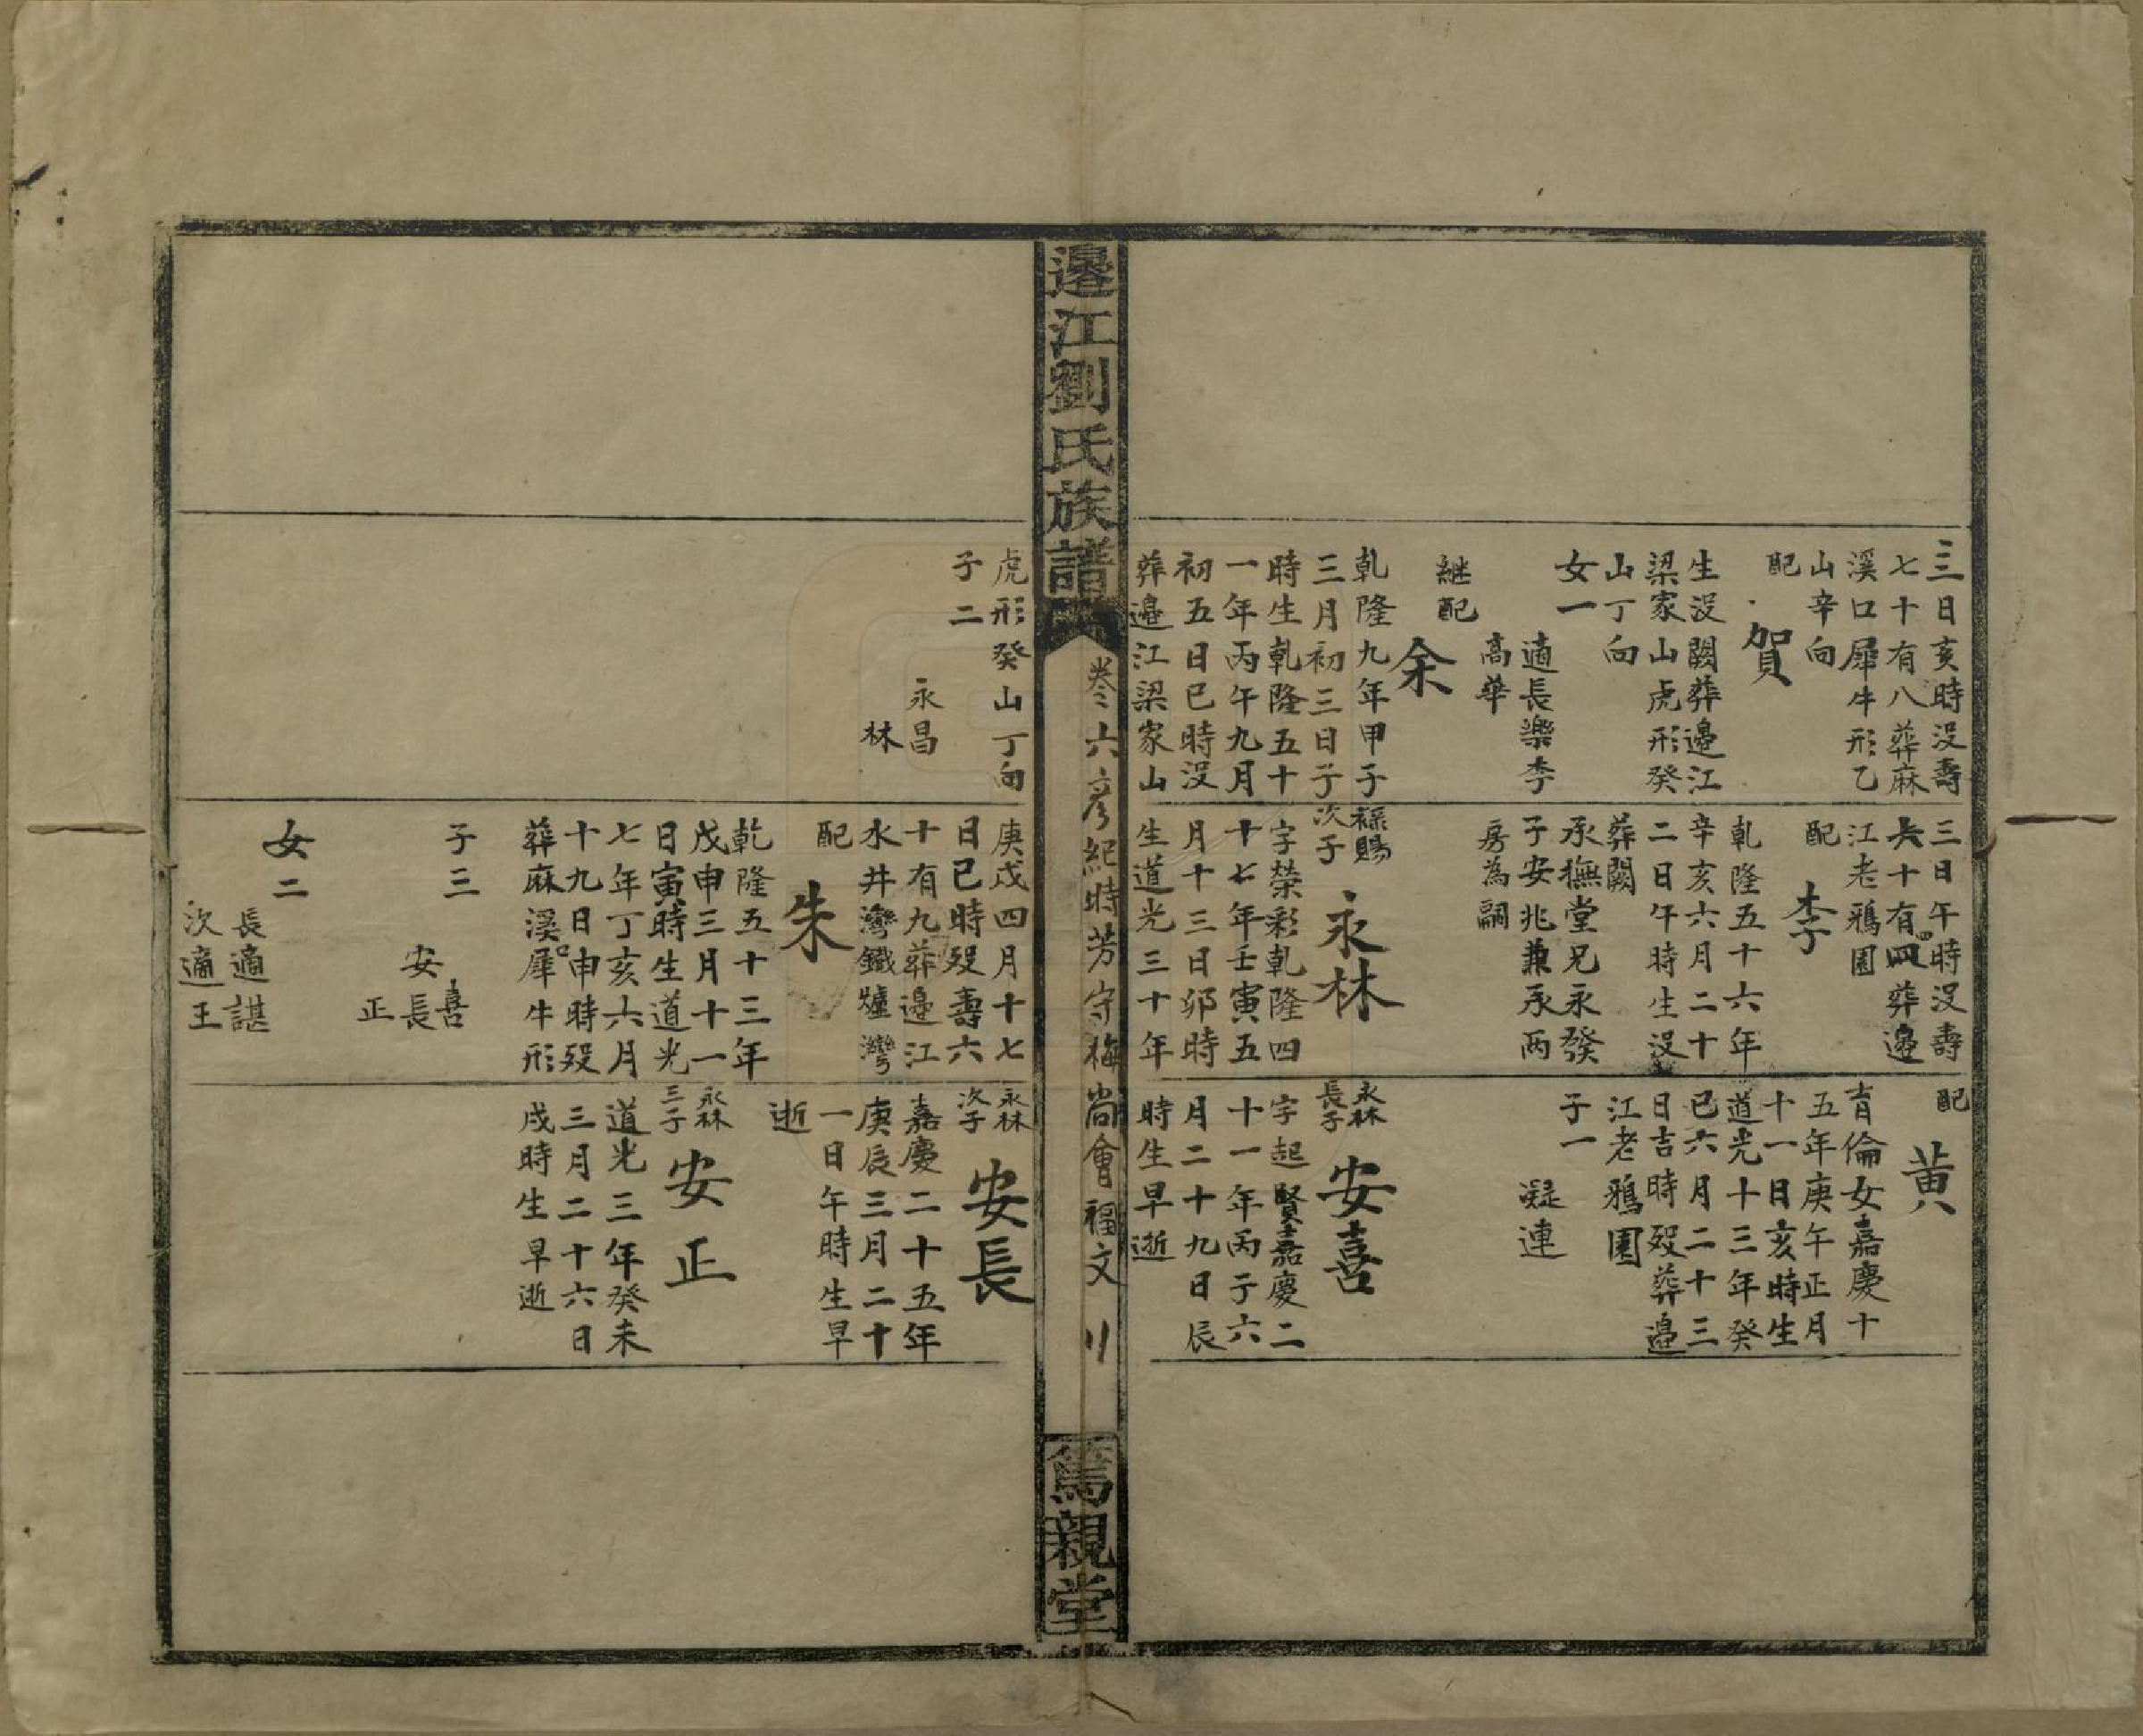 三日亥時没壽
七十有八葬麻
溪口犀牛形乙
山辛向
配
賀
生没闕葬邉江
梁家山虎形癸
山丁向
女一
適長樂李
高華
継配
余
乾隆九年甲子
三月初三日子
時生乾隆五十
一年丙午九月
初五日巳時没
葬邉江梁家山
三日午時没壽
六十有四葬邉
江老鴉園
配
李
乾隆五十六年
辛亥六月二十
二日午時生没
葬闕
承撫堂兄永發
子安兆兼承兩
房為嗣
祿賜
次子
永林
字榮彩乾隆四
十七年壬寅五
月十三日卯時
生道光三十年
配
黄
育倫女嘉慶十
五年庚午正月
十一日亥時生
道光十三年癸
巳六月二十三
日吉時殁葬邉
江老鴉園
子一
凝連
永林
長子
安喜
字起賢嘉慶二
十一年丙子六
月二十九日辰
時生早逝
邉江劉氏族譜
卷六彦紀時芳守梅尚會福文
篤親堂
虎形癸山丁向
子二
永昌
林
庚戌四月十七
日巳時殁壽六
十有九葬邉江
水井灣鐵爐灣
配
朱
乾隆五十三年
戊申三月十一
日寅時生道光
七年丁亥六月
十九日申時殁
葬麻溪口犀牛形
子三
喜
安長
正
女二
長適諶
次適王
永林
次子
安長
嘉慶二十五年
庚辰三月二十
一日午時生早
逝
永林
三子
安正
道光三年癸未
三月二十六日
戌時生早逝